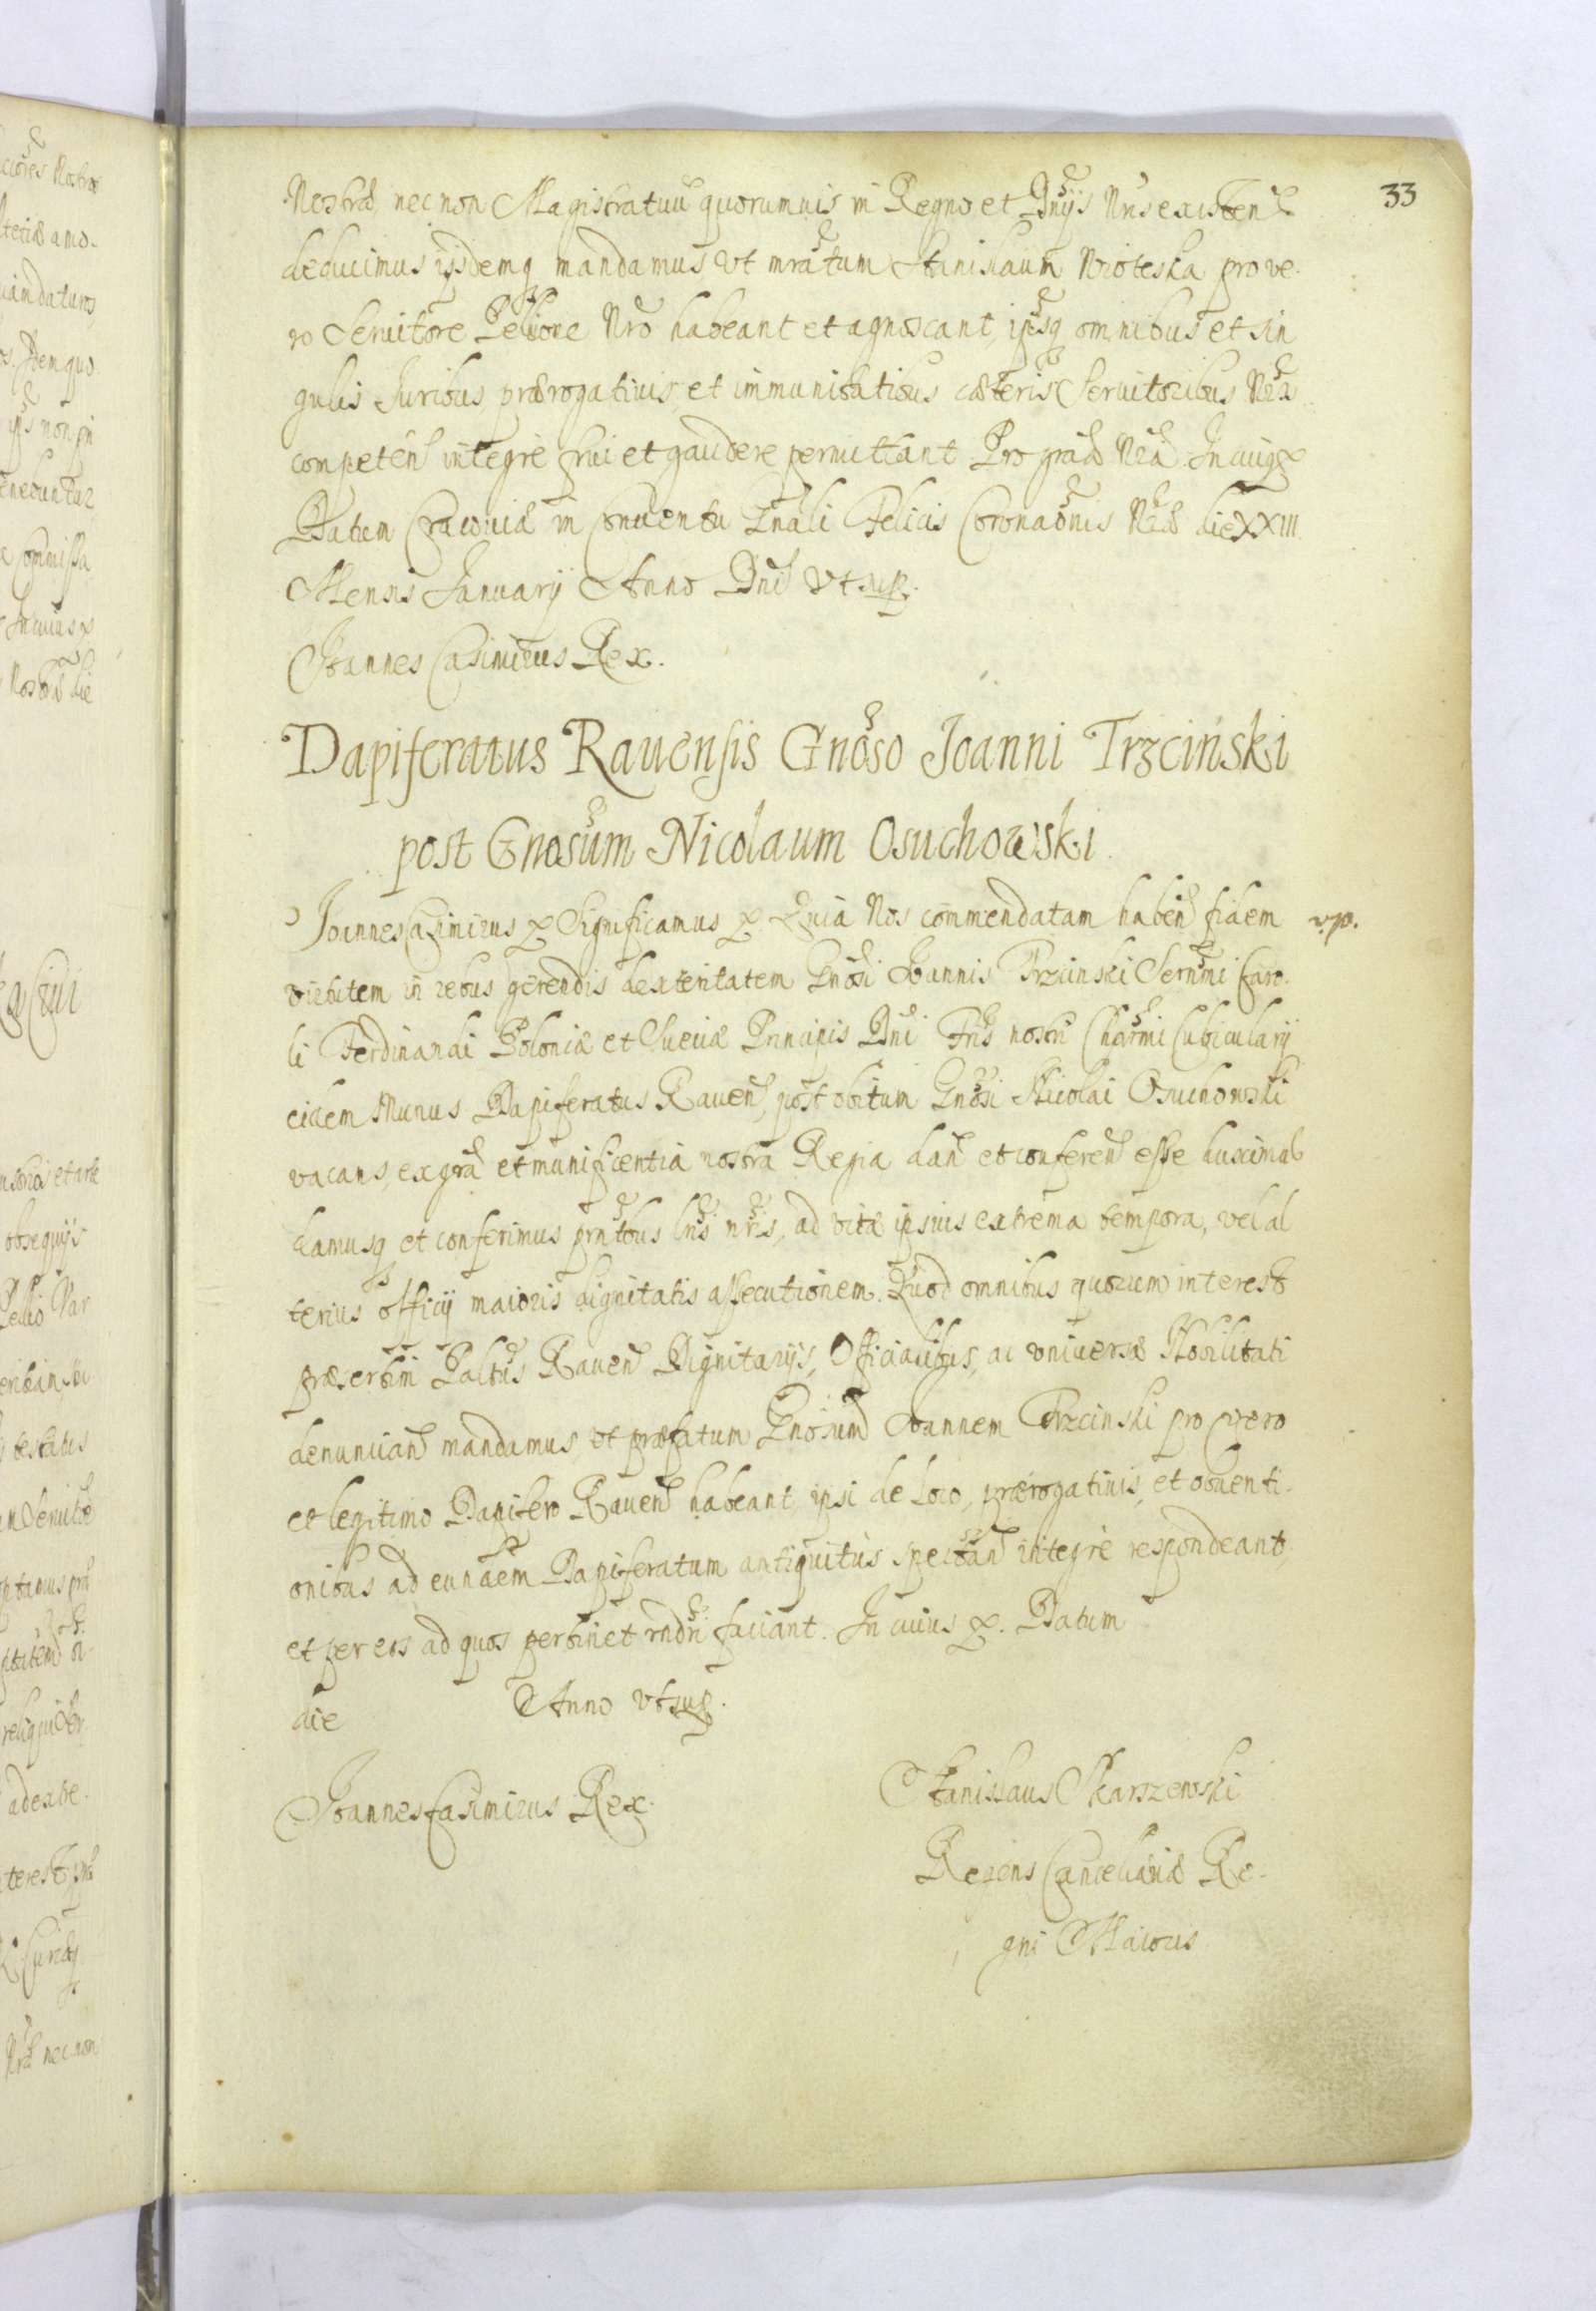 33
Nostrae nec non Magistratuu quorumuis in Regno et Dnijs Nris existen
deducimus ijsdemq mandamus vt mratum Stanislaum Wioteska pro ve-
ro Seruitore Nro habeant et agnoscant, ipsiq omnibus et sin
gulis Juribus, praerogatiuis, et immunitatibus caeteris Seruitoribus Nris
competen integrè frui et gaudere permittant Pro gra Nra. In cuiq
Datum Cracouiae in Conuentu Gnali Felicis Coronaonis Nrae die XXIII
Mensis Januarij Anno Dni vt sup.
Joannes Casimirus Rex.
Dapiferatus Rauensis Gnoso Joanni Trzciński
post Gnosum Nicolaum Osuchowski
Joannes Casimirus Significamus Quia Nos commendatam haben fidem
virtutem in rebus gerendis dexteritatem Gnosi Joannis Trzcinski Sernmi Caro-
li Ferdinandi Poloniae et Sueciae Principis Dni Fris nostri Charmi Cubicularij
eidem Munus Dapiferatus Rauen, post obitum Gnosi Nicolai Osuchowski
vacans, ex gra et munificentia nostra Regia dan et conferen esse duximus
damusq et conferimus prntbus lris nris, ad vitae ipsius extrema tempora, vel al
terius officij maioris dignitatis assecutionem. Quod omnibus quorum interest
praesertim Palttus Rauen Dignitarijs, Officialibus, ac vniuersae Nobilitati
denuncian mandamus, vt praefatum Gnosum Joannem Trzcinski pro vero
et legitimo Dapifero Rauen habeant, ipsi de loco, praerogatiuis, et obuenti-
onibus ad eundem Dapiferatum antiquitùs spectan integrè respondeant
et per eos ad quos pertinet rndri faciant. In cuius Datum
die Anno vt sup.
Joannes Casimirus Rex.
Stanislaus Skarszewski
Regens Cancellariae Re-
gni Maioris